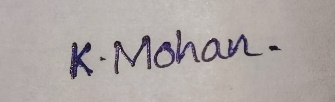 K. Mohan.